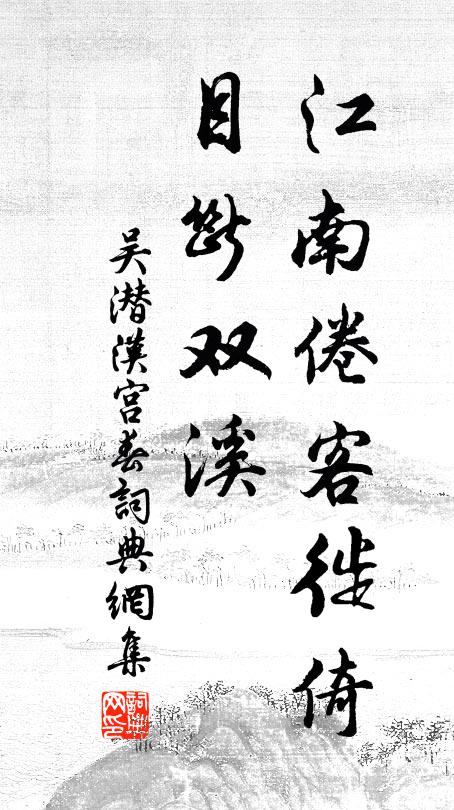 江南倦客徙倚
目断双溪
吴潜漢宫春詞典網集